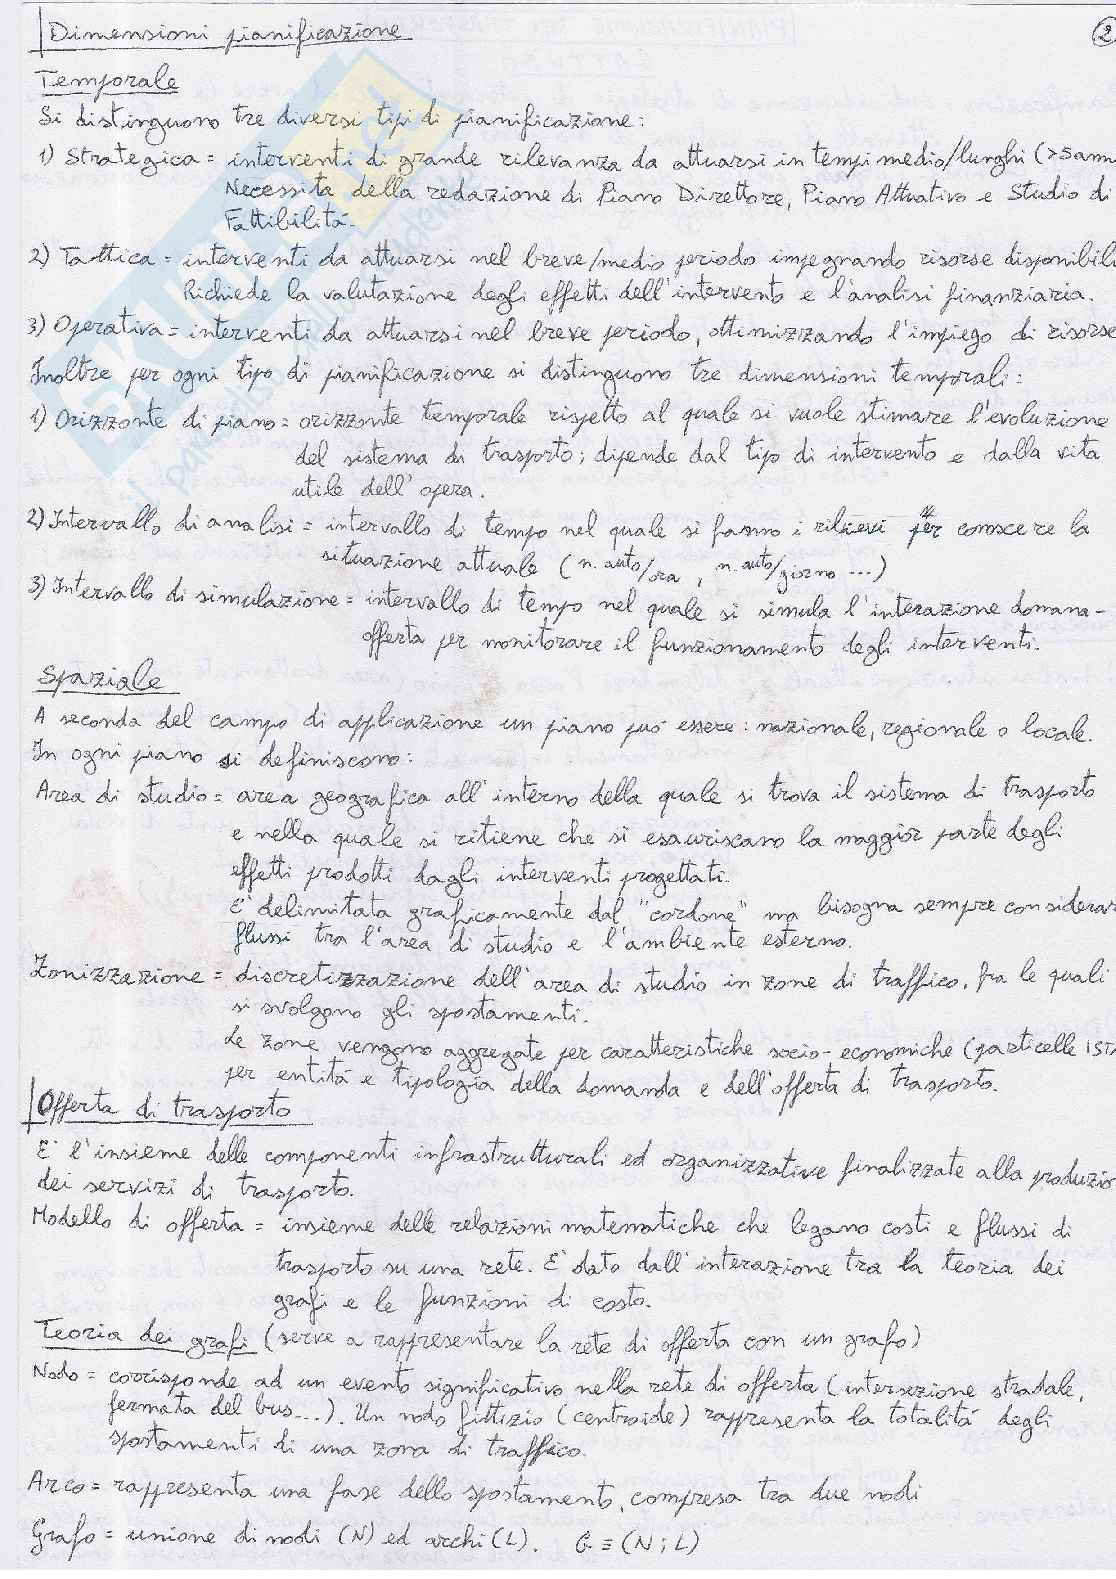 Dimensioni pianificazione
2
Temporale
Si distinguono tre diversi tipi di pianificazione:
1) Strategica = interventi di grande rilevanza da attuarsi in tempi medio/lunghi (>5ann
Necessita della redazione di Piano Direttore, Piano Attuativo e Studio di
Fattibilità.
2) Tattica = interventi da attuarsi nel breve/medio periodo impegnando risorse disponibili
Richiede la valutazione degli effetti dell'intervento e l'analisi finanziaria.
3) Operativa = interventi da attuarsi nel breve periodo, ottimizzando l'impiego di risorse
Inoltre per ogni tipo di pianificazione si distinguono tre dimensioni temporali:
1) Orizzonte di piano = orizzonte temporale rispetto al quale si vuole stimare l'evoluzione
del sistema di trasporto; dipende dal tipo di intervento e dalla vita
utile dell'opera.
2) Intervallo di analisi = intervallo di tempo nel quale si fanno i rilievi per conoscere la
situazione attuale (n. auto/ora, n. auto/giorno ...)
3) Intervallo di simulazione = intervallo di tempo nel quale si simula l'interazione domana-
offerta per monitorare il funzionamento degli interventi.
Spaziale
A seconda del campo di applicazione un piano può essere: nazionale, regionale o locale.
In ogni piano si definiscono:
Area di studio = area geografica all'interno della quale si trova il sistema di trasporto
e nella quale si ritiene che si esauriscano la maggior parte degli
effetti prodotti dagli interventi progettati.
E' delimitata graficamente dal "cordone" ma bisogna sempre considerar
flussi tra l'area di studio e l'ambiente esterno.
Zonizzazione = discretizzazione dell'area di studio in zone di traffico, fra le quali
si svolgono gli spostamenti.
Le zone vengono aggregate per caratteristiche socio-economiche (particelle ISTA
per entità e tipologia della domanda e dell'offerta di trasporto.
Offerta di trasporto
E' l'insieme delle componenti infrastrutturali ed organizzative finalizzate alla produzio
dei servizi di trasporto.
Modello di offerta = insieme delle relazioni matematiche che legano costi e flussi di
trasporto su una rete. E' dato dall'interazione tra la teoria dei
grafi e le funzioni di costo.
Teoria dei grafi (serve a rappresentare la rete di offerta con un grafo)
Nodo = corrisponde ad un evento significativo nella rete di offerta (intersezione stradale,
fermata del bus...). Un nodo fittizio (centroide) rappresenta la totalità degli
spostamenti di una zona di traffico.
Arco = rappresenta una fase dello spostamento, compresa tra due nodi
Grafo = unione di nodi (N) ed archi (L). G ≡ (N; L)